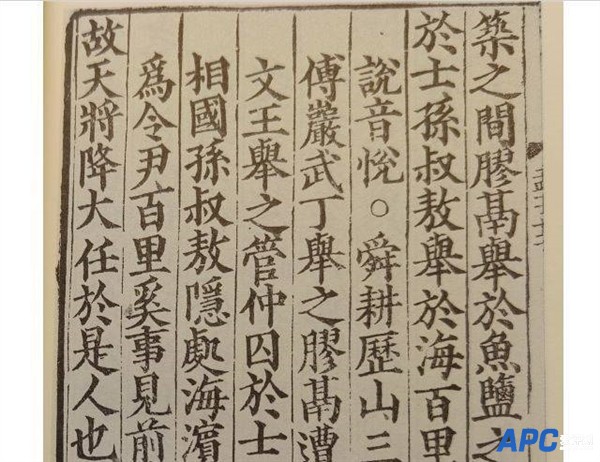 築之間膠鬲舉於魚鹽之
於士孫叔敖舉於海百里
說音悅○舜耕歷山三
傅巖武丁舉之膠鬲遭
文王舉之管仲囚於士
相國孫叔敖隱處海濱
爲令尹百里奚事見前
故天將降大任於是人也
APC